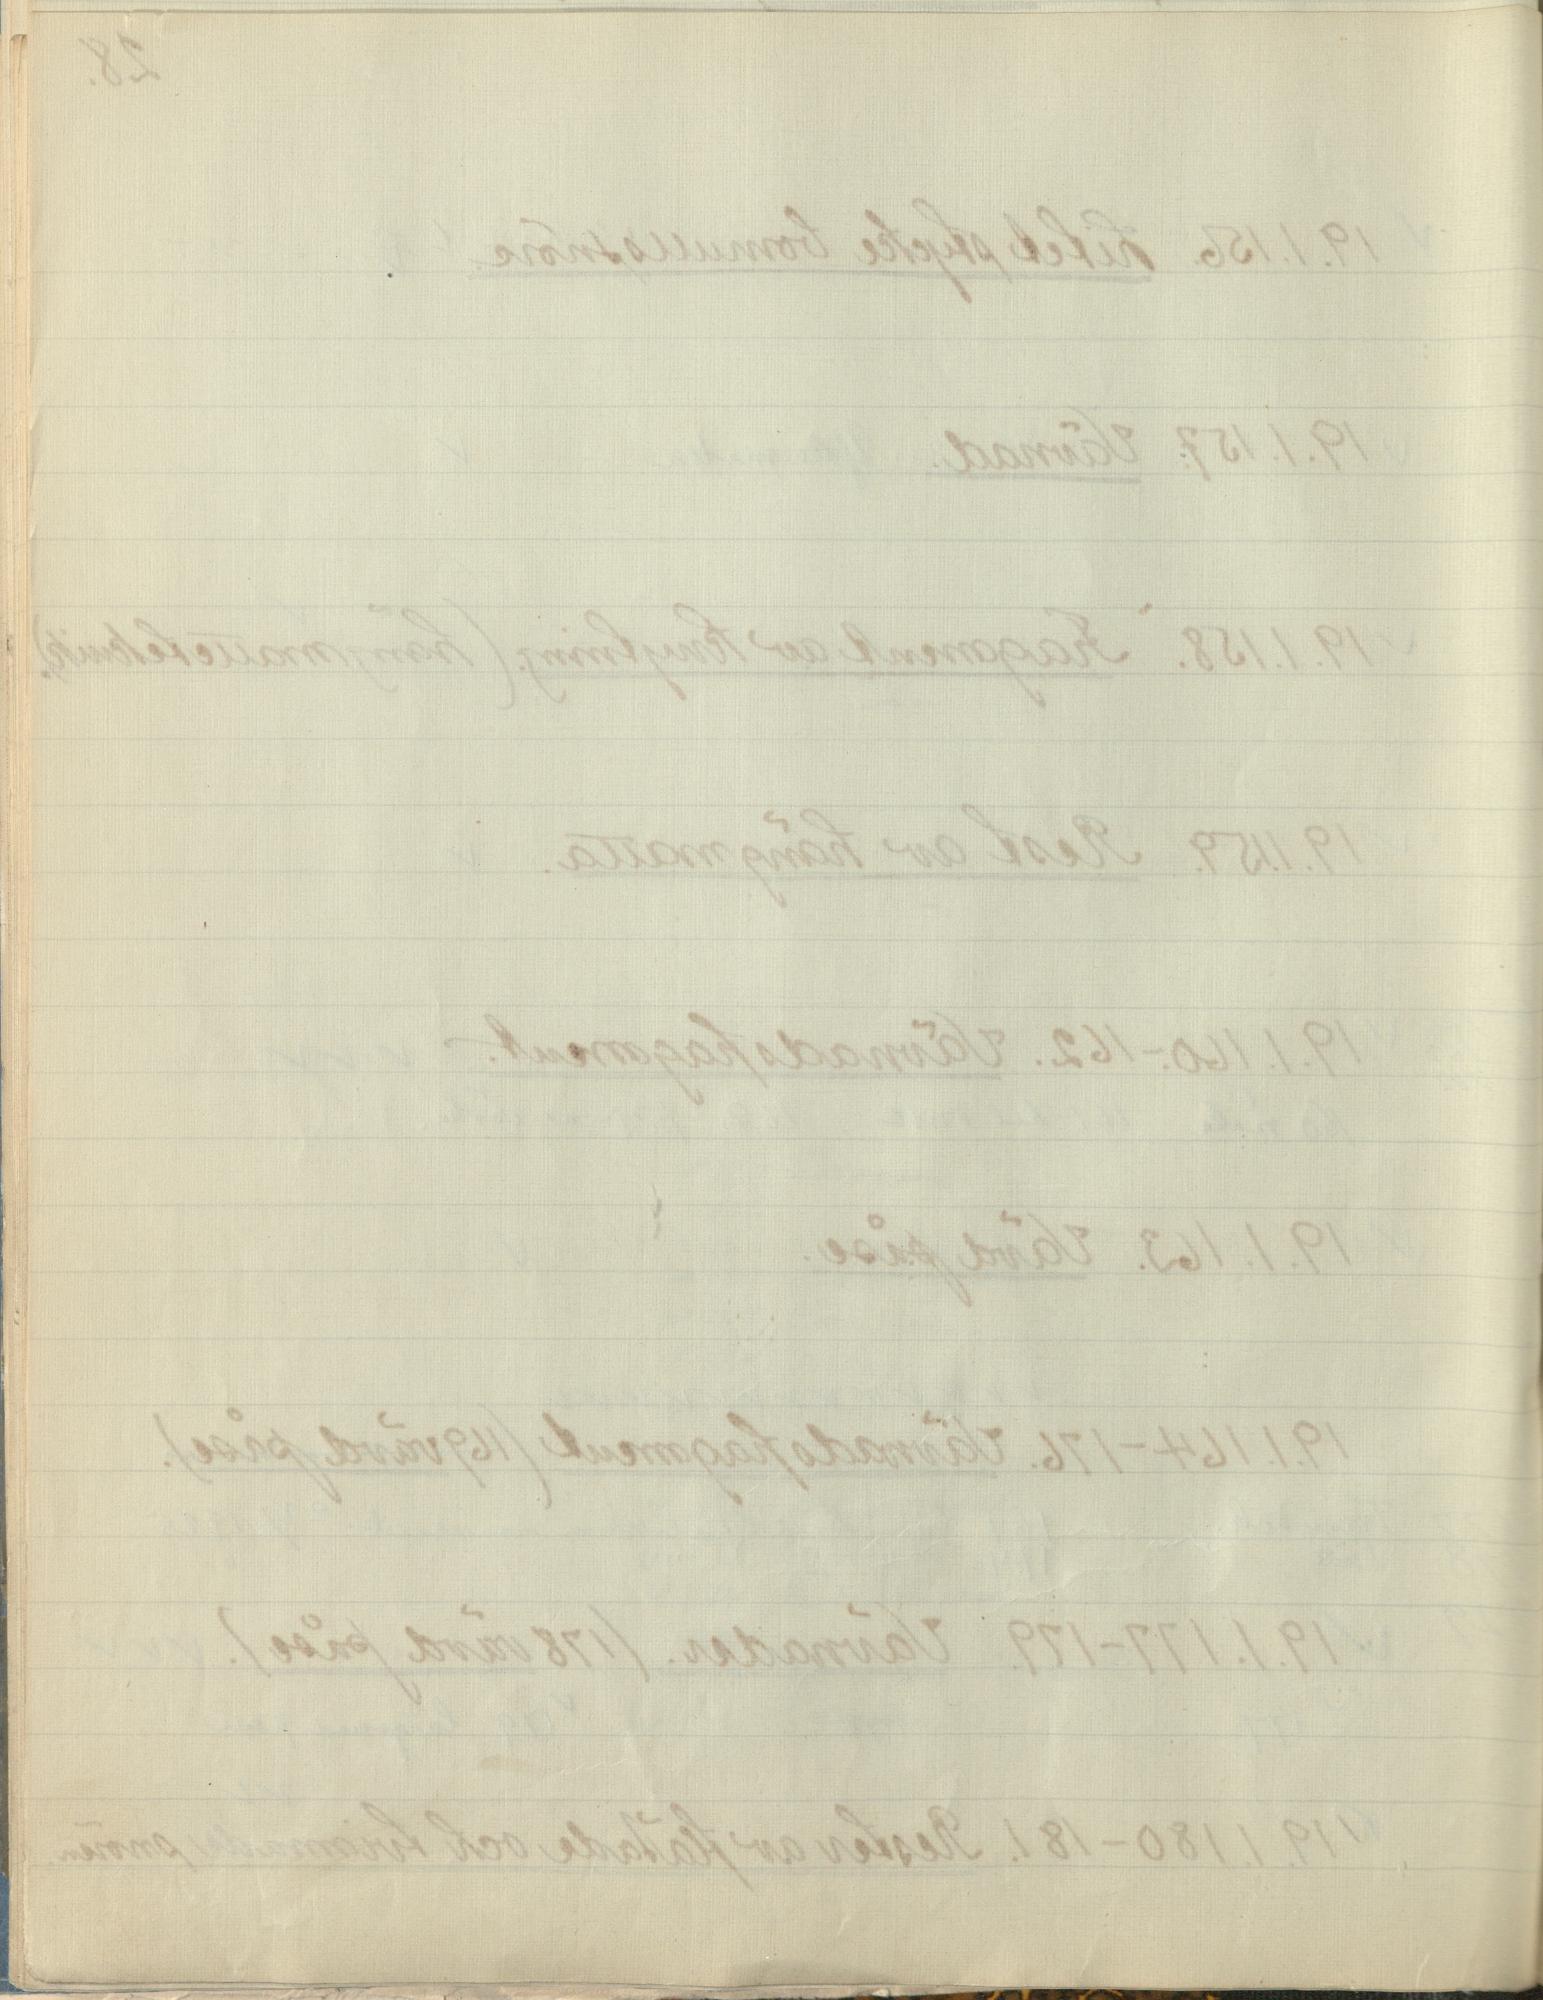 28.
19.1.156. Litet stycke bomullssnöre.
19.1.157. Vävnad.
19.1.158. Fragment av knytning. (hängmatteteknik).
19.1.159. Rest av hängmatta.
19.1.160.-162. Vävnadsfragment.-
19.1.163. Vävd påse.
19.1.164-176. Vävnadsfragment (169 vävd påse).
19.1.177-179. Vävnader. (178 vävd påse).
19.1.180-181. Rester av flätade och tvinnade snören.